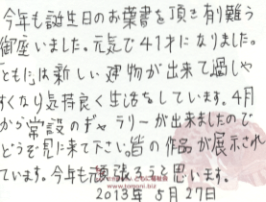 今年も誕生日のお葉書を頂き有り難う
御座いました。元気で41才になりました。
ともには新しい建物が出来て過しや
すくなり気持良く生活をしています。4月
から常設のギャラリーが出来ましたので
どうぞ見に来て下さい。皆の作品が展示され
ています。今年も頑張ろうと思います。
2013年 5月27日